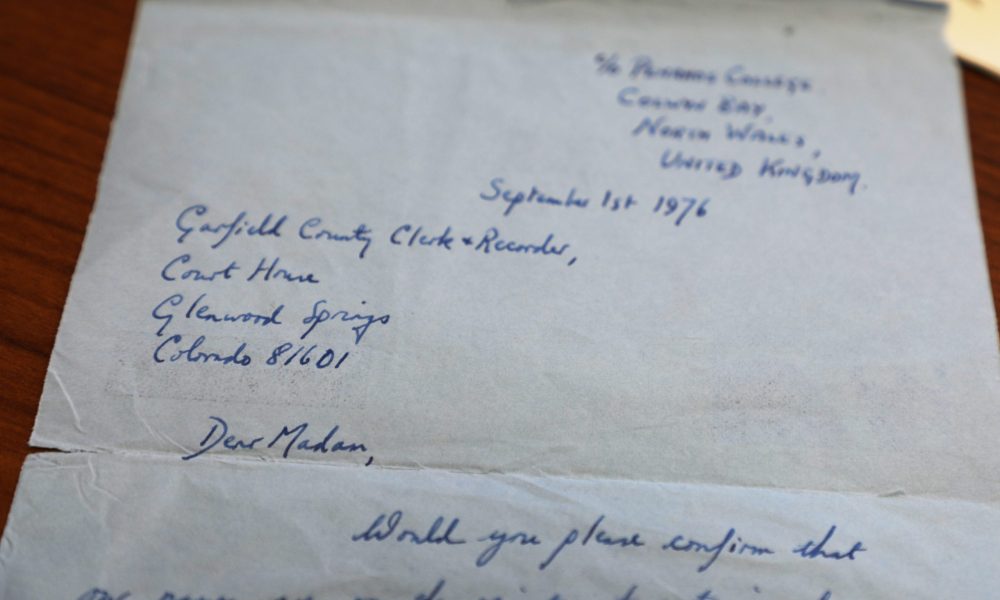 c/o Penrhos College.
Colwyn Bay,
North Wales,
United Kingdom.
September 1st 1976
Garfield County Clerk + Recorder,
Court House
Glenwood Springs
Colorado 81601
Dear Madam,
Would you please confirm that